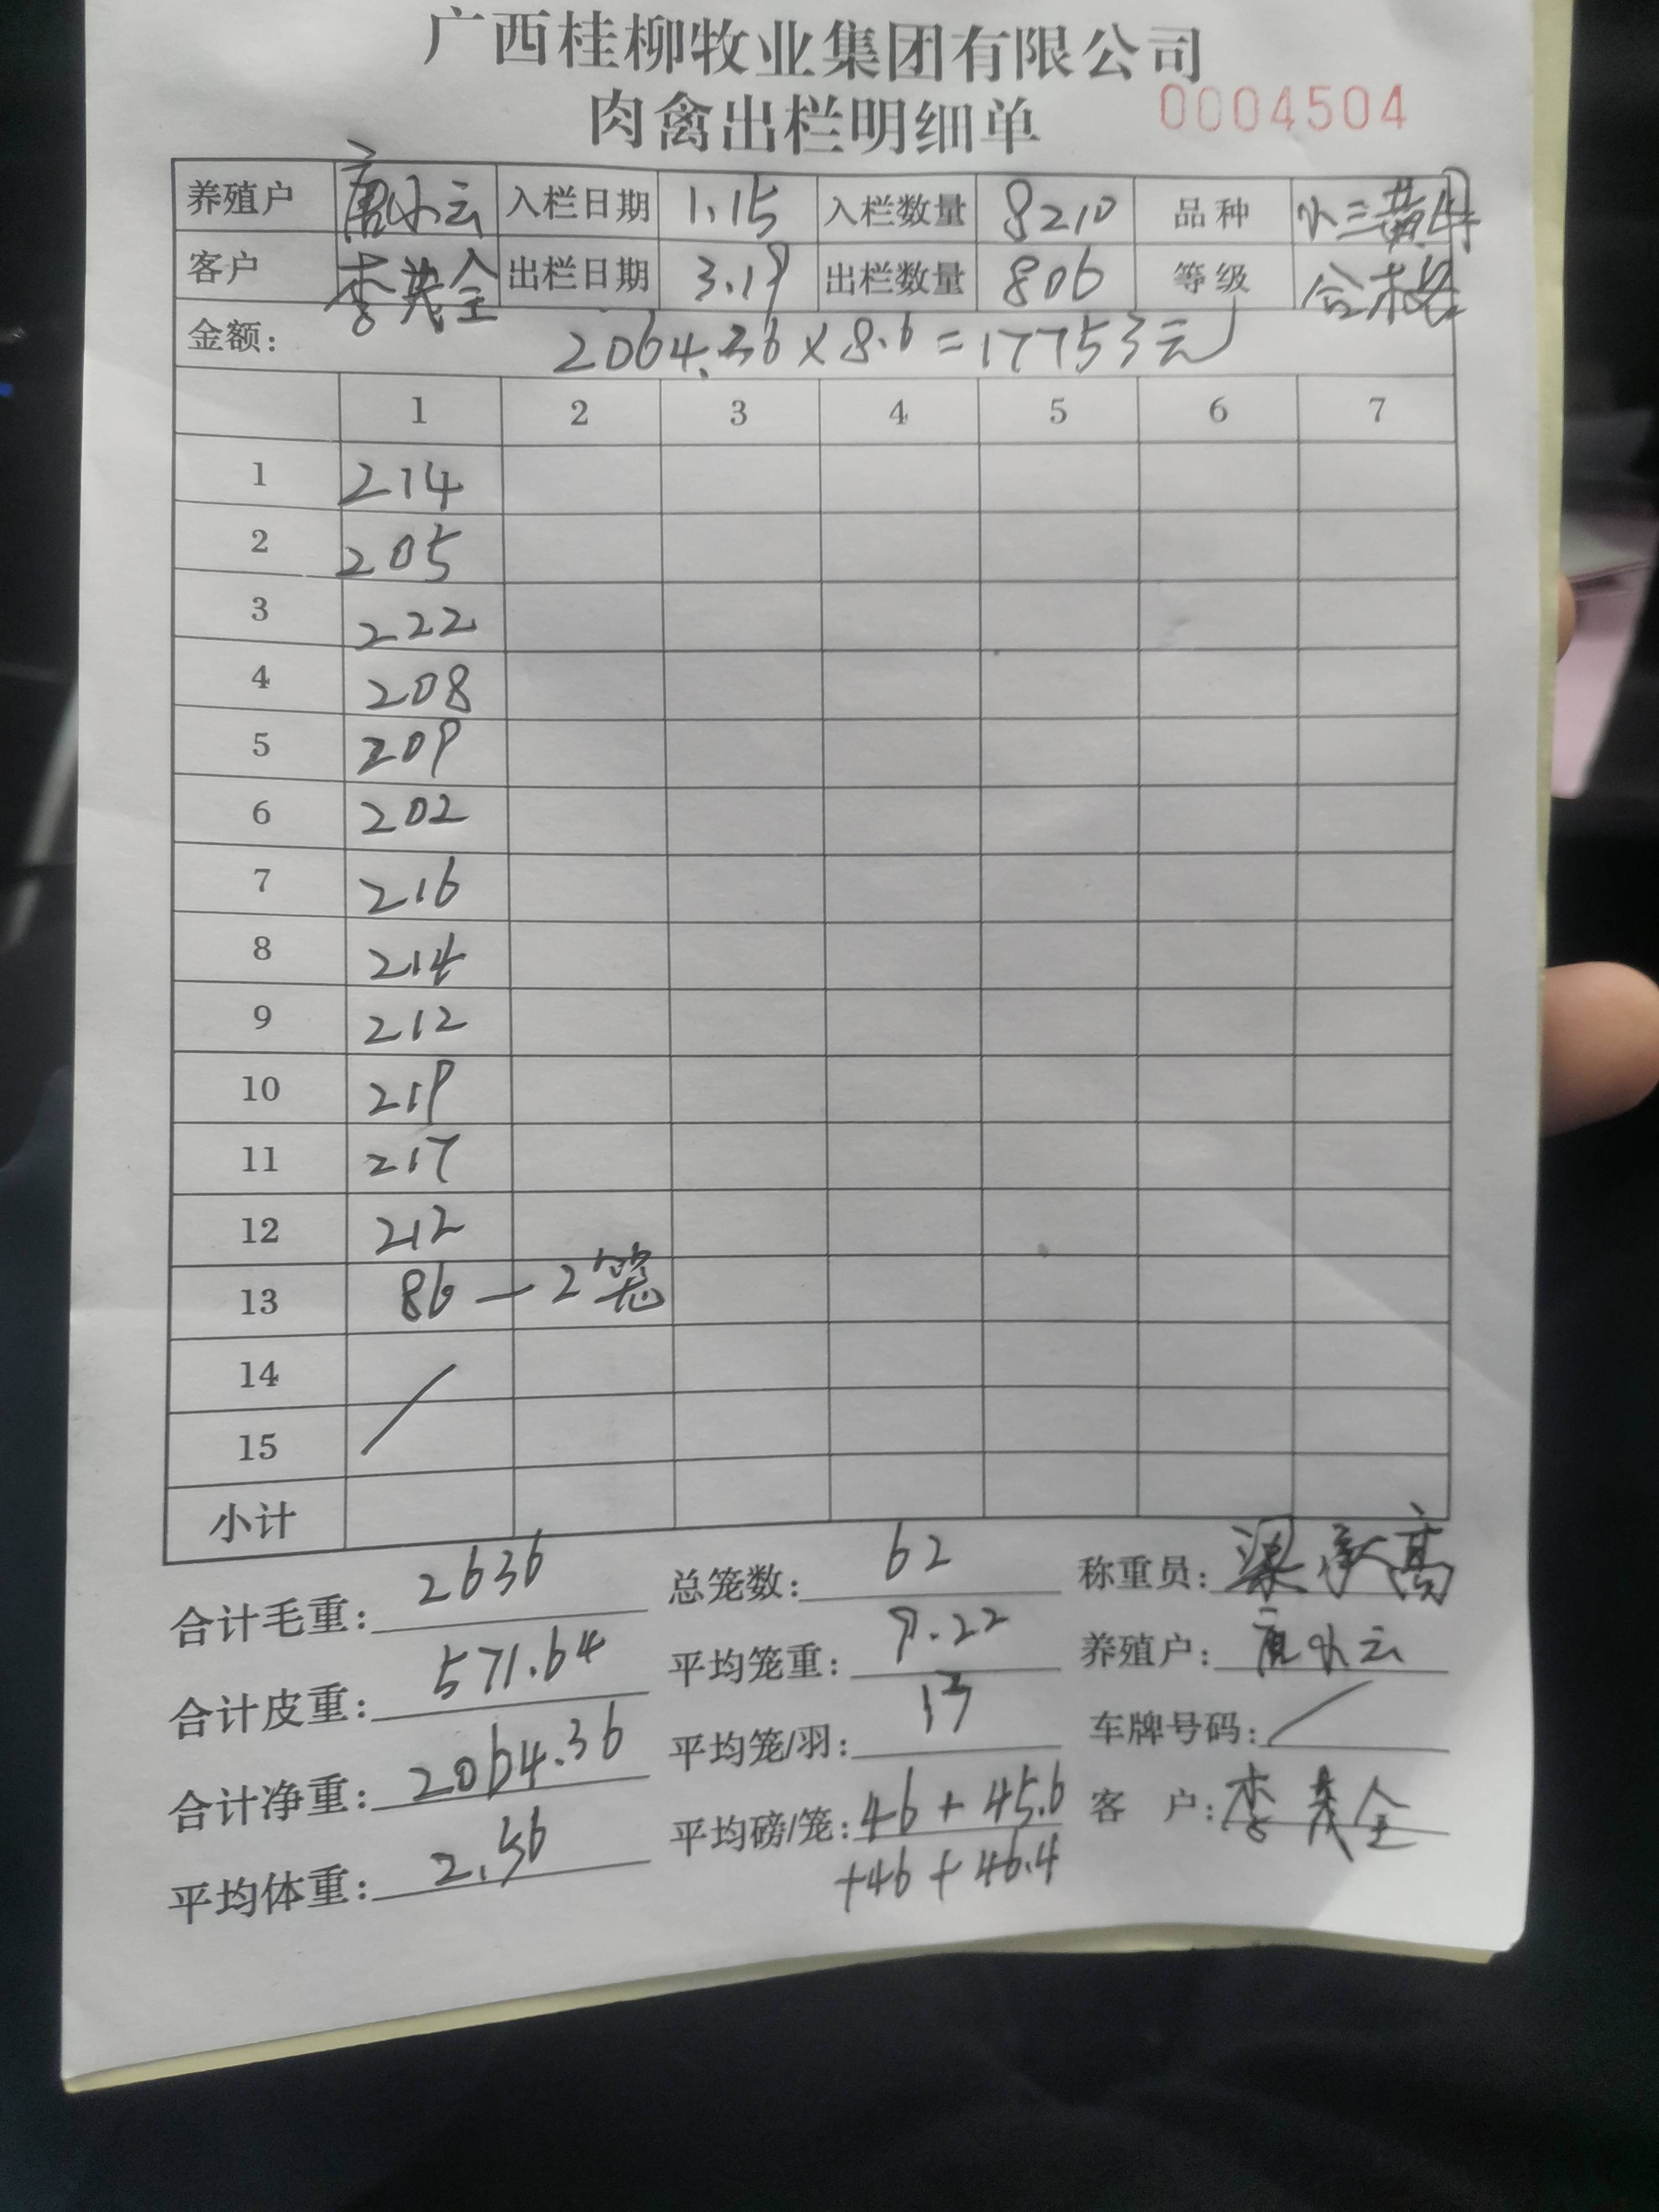 广西桂柳牧业集团有限公司
肉禽出栏明细单 0004504
养殖户 唐小云 入栏日期 1.15 入栏数量 8210 品种 小三黄母
客户 李茂全 出栏日期 3.19 出栏数量 806 等级 合格
金额: 2064.36×8.6=17753元
1 2 3 4 5 6 7
1 214
2 205
3 222
4 208
5 209
6 202
7 216
8 214
9 212
10 219
11 217
12 212
13 86 — 2笼
14
15
小计
合计毛重: 2636 总笼数: 62 称重员: 梁承高
合计皮重: 571.64 平均笼重: 9.22 养殖户: 唐小云
合计净重: 2064.36 平均笼/羽: 13 车牌号码: /
平均体重: 2.56 平均磅/笼: 46+45.6 客 户: 李茂全
+46+46.4